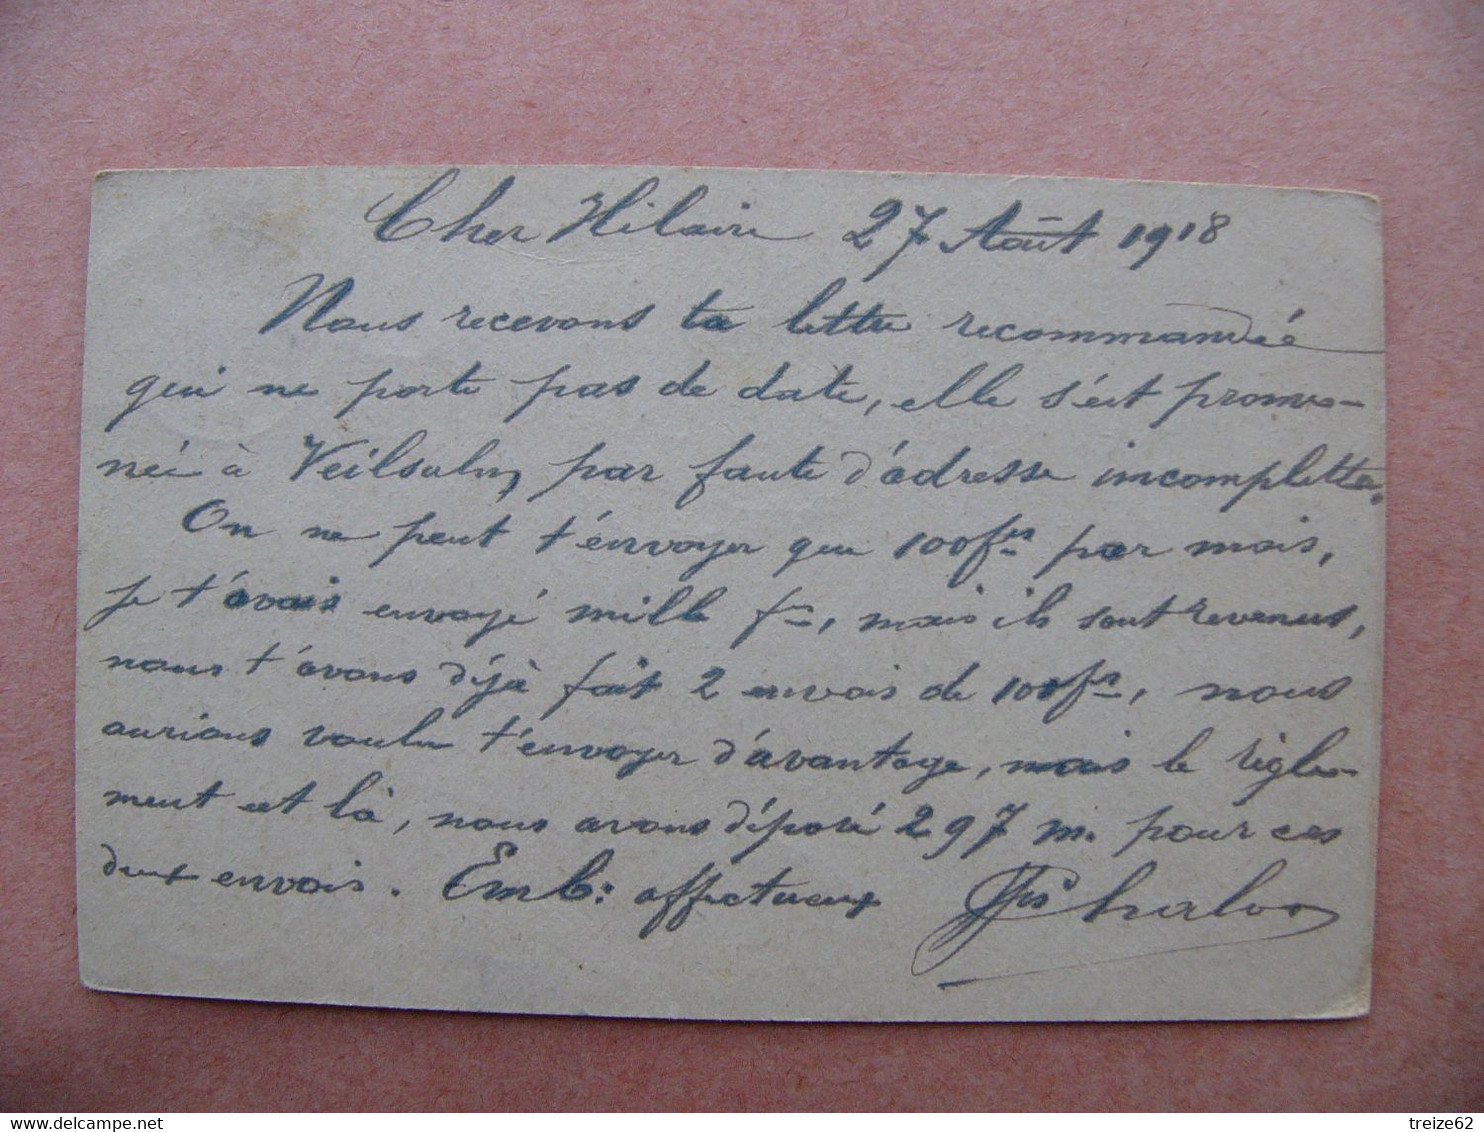 Cher Hilaire 27 Août 1918
Nous recevons ta lettre recommandée
qui ne porte pas de date, elle s'est prome-
née à Veilsalm, par faute d'adresse incomplette.
On ne peut t'envoyer que 100 frs par mois,
je t'avais envoyé mille frs, mais ils sont revenus,
nous t'avons déjà fait 2 envois de 100 frs, nous
aurions voulu t'envoyer d'avantage, mais le règle-
ment est là, nous avons déposé 297 m. pour ces
deux envois. Emb: affectueux
www.delcampe.net
treize62